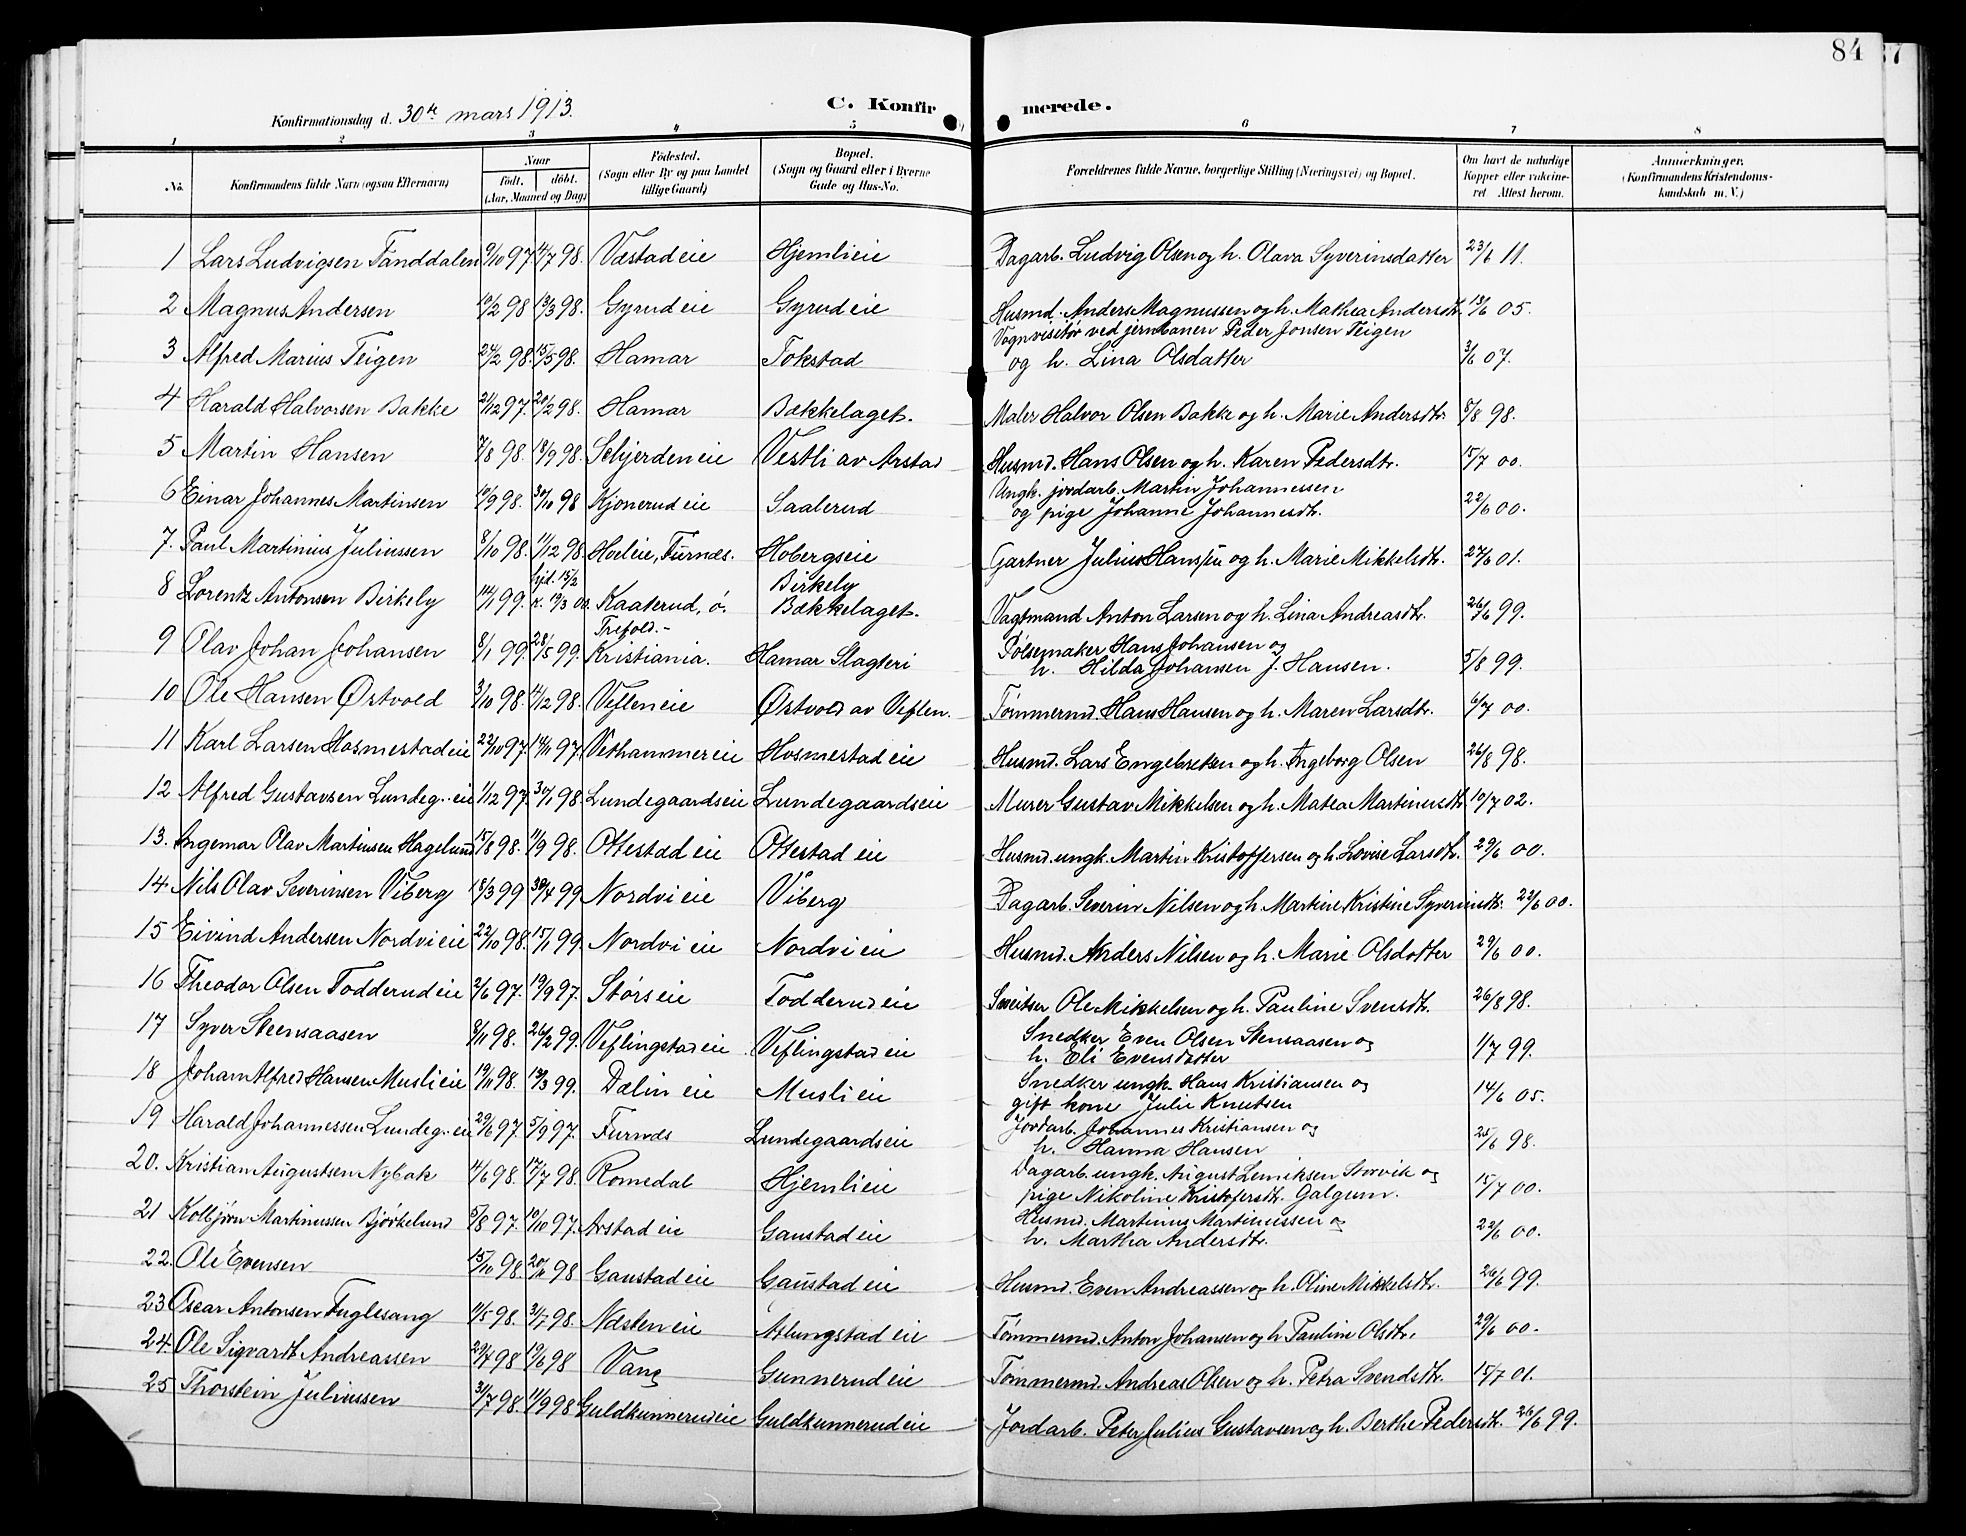 84
Konfirmationsdag d. 30te mars 1913.
C. Konfirmerede.
1 2 3 4 5 6 7 8
No. Konfirmandens fulde Navn (ogsaa Efternavn) Naar født, døbt. (Aar, Maaned og Dag) Fødested. (Sogn eller By og paa Landet tillige Gaard) Bopæl. (Sogn og Gaard eller i Byerne Gade og Hus-No. Forældrenes fulde Navne, borgerlige Stilling (Næringsvei) og Bopæl. Om havt de naturlige Kopper eller vaccineret Attest herom. Anmærkninger. (Konfirmandens Kristendomskundskab m. V.)
1 Lars Ludvigsen Tånddalen 9/10 97 4/7 98. Væstadeie Hjemlieie Dagarb. Ludvig Olsen og h. Olava Syverinsdatter 23/6 11.
2 Magnus Andersen 10/2 98 13/3 98. Gyrud eie Gyrud eie Husmd. Anders Magnussen og h. Mathea Andersdtr. 13/6 05.
3 Alfred Marius Teigen 24/2 98. 15/5 98. Hamar Tokstad Vognvisitør ved jernbanen Peder Jonsen Teigen
og h. Lina Olsdatter 3/6 07.
4 Harald Halvorsen Bakke 21/12 97. 20/2 98. Hamar Bækkelaget. Maler Halvor Olsen Bakke og h. Marie Andersdtr. 8/8 98.
5 Martin Hansen 7/8 98. 18/9 98. Schjerden eie Vestli av Arstad Husmd. Hans Olsen og h. Karen Pedersdtr. 15/7 00.
6 Einar Johannes Martinsen 10/9 98. 30/10 98 Kjonerud eie Saalerud Ungk. jordarb. Martin Johannessen
og pige Johanne Johannesdtr. 22/6 00.
7. Paul Martinius Juliussen 8/10 98. 11/12 98. Hoeleie, Furnæs. Hobergseie Gartner Julius Hanssen og h. Marie Mikkelsdtr. 27/6 01.
8 Lorentz Antonsen Birkely 14/1 99. hjd. 15/2 k. 19/3 00. Kaaterud, ø. Birkely Bækkelaget. Vagtmand Anton Larsen og h. Lina Andreasdtr. 26/6 99.
9 Olav Johan Johansen 8/1 99. 28/5 99. Trefold.- Kristiania. Hamar Slagteri Pølsemaker Hans Johansen og
h. Hilda Johansen f. Hansen. 5/8 99.
10 Ole Hansen Østvold 3/10 98. 4/12 98. Veflen eie Østvold av Veflen. Tømmermd. Hans Hansen og h. Maren Larsdtr. 6/7 00.
11 Karl Larsen Hosmestad eie 22/10 97. 14/11 97. Vethammer eie Hosmestad eie Husmd. Lars Engebretsen og h. Ingeborg Olsen 26/8 98.
12 Alfred Gustavsen Lundeg. eie 1/12 97. 30/1 98. Lundegaardseie Lundegaardseie Murer Gustav Mikkelsen og h. Matea Martinusdtr. 10/7 02.
13. Ingemar Olav Martinsen Hagelund 15/8 98. 11/9 98. Ottestad eie Ottestad eie Husmd. ungk. Martin Kristoffersen og h. Lovise Larsdtr. 29/6 00.
14 Nils Olav Severinsen Viberg 18/3 99 30/4 99 Nordvi eie Viberg Dagarb. Severin Nilsen og h. Martine Kristine Syverinsdtr. 22/6 00.
15 Eivind Andersen Nordvi eie 22/10 98. 15/1 99. Nordvi eie Nordvi eie Husmd. Anders Nilsen og h. Marie Olsdatter 29/6 00.
16 Theodor Olsen Todderud eie 2/6 97. 19/9 97. Størs eie Todderud eie Sveitser Ole Mikkelsen og h. Pauline Svensdtr. 26/8 98.
17 Syver Steensaasen 8/11 98. 26/2 99. Veflingstad eie Veflingstad eie Snedker Even Olsen Stensaasen og
h. Eli Evensdatter 1/7 99.
18 Johan Alfred Hansen Musli eie 19/11 98. 19/3 99. Dælin eie Musli eie Snedker ungk. Hans Kristiansen og
gift kone Julie Knutsen 14/6 05.
19 Harald Johannessen Lundeg. eie 29/6 97. 5/9 97. Furnæs Lundegaardseie Jordarb. Johannes Kristiansen og
h. Hanna Hansen 25/6 98.
20. Kristian Augustsen Nybak 4/6 98. 17/7 98. Romedal Hjemlieie Dagarb. ungk. August Lenriksen Storvik og
pige Nikoline Kristofersdtr. Galgum. 15/7 00.
21 Kolbjørn Martinussen Bjørkelund 5/8 97. 10/10 97. Arstad eie Gaustad eie Husmd. Martinius Martinussen og
h. Martha Andersdtr. 22/6 00.
22. Ole Evensen 15/10 98. 20/11 98 Gaustad eie Gaustad eie Husmd. Even Andreassen og h. Oline Mikkelsdtr. 26/6 99.
23 Oscar Antonsen Fuglesang 11/5 98. 3/7 98. Næsten eie Atlungstad eie Tømmermd. Anton Johansen og h. Pauline Olsdtr. 29/6 00.
24. Ole Sigvardt Andreassen 29/4 98 19/6 98 Vang Gunnerud eie Tømmermd. Andreas Olsen og h. Petra Svendsdtr. 15/7 01.
25 Thorstein Juliussen 31/7 98. 11/9 98 Guldkunnerud eie Guldkunnerud eie Jordarb. Peter Julius Gustavsen og h. Berthe Pedersdtr. 26/6 99.